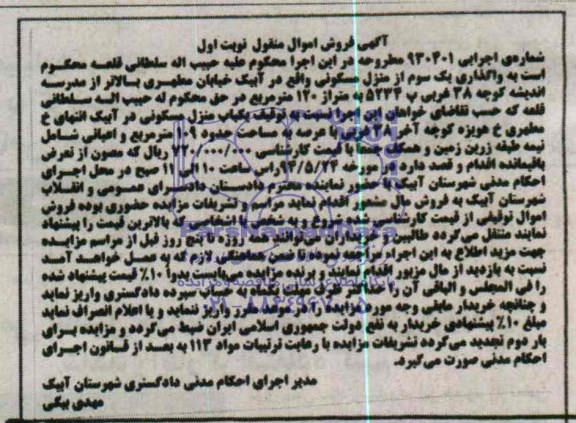 آگهی فروش اموال منقول نوبت اول
شماره‌ی اجرایی ۹۳۰۴۰۱ مطروحه در این اجرا محکوم علیه حبیب اله سلطانی قلعه محکوم
است به واگذاری یک سوم از منزل مسکونی واقع در آبیک خیابان مطهری بالاتر از مدرسه
اندیشه کوچه ۳۸ غربی پ ۵۲۳۴ به متراژ ۱۳۰ مترمربع در حق محکوم له حبیب اله سلطانی
قلعه که حسب تقاضای خواهان این اجرا نسبت به توقیف یکباب منزل مسکونی در آبیک انتهای خ
مطهری خ هویزه کوچه آخر ۳۸ غربی با عرصه به مساحت حدود مترمربع و اعیانی شامل
نیمه طبقه زرین زمین و همکف جمعا با قیمت کارشناسی ۷۲۰/۰۰۰/۰۰۰ ریال که مصون از تعرض
باقیمانده اقدام و قصد دارد در مورخه ۹۳/۵/۲۳ راس ساعت ۱۰ الی ۱۱ صبح در محل اجرای
احکام مدنی شهرستان آبیک با حضور نماینده محترم دادستان دادسرای عمومی و انقلاب
شهرستان آبیک به فروش مال مشعور اقدام نماید مراسم و تشریفات مزایده حضوری بوده فروش
اموال توقیفی از قیمت کارشناسی شده شروع و به شخص یا اشخاصی که بالاترین قیمت را پیشنهاد
نمایند منتقل می‌گردد طالبین و خریداران می‌توانند همه روزه تا پنج روز قبل از مراسم مزایده
جهت مزید اطلاع به این اجرا مراجعه نموده تا ضمن هماهنگی لازم که به عمل خواهد آمد
نسبت به بازدید از مال مزبور اقدام نمایند و برنده مزایده می‌بایست بدوا ۱۰٪ قیمت پیشنهاد شده
را فی المجلس و الباقی آن را حداکثر ظرف به حساب سپرده دادگستری واریز نماید
و چنانچه خریدار مابقی وجه مورد مزایده را در موعد مقرر واریز ننماید و یا اعلام انصراف نماید
مبلغ ۱۰٪ پیشنهادی خریدار به نفع دولت جمهوری اسلامی ایران ضبط می‌گردد و مزایده برای
بار دوم تجدید می‌گردد تشریفات مزایده با رعایت ترتیبات مواد ۱۱۳ به بعد از قانون اجرای
احکام مدنی صورت می‌گیرد.
مدیر اجرای احکام مدنی دادگستری شهرستان آبیک
مهدی بیگی
ParsNamadData